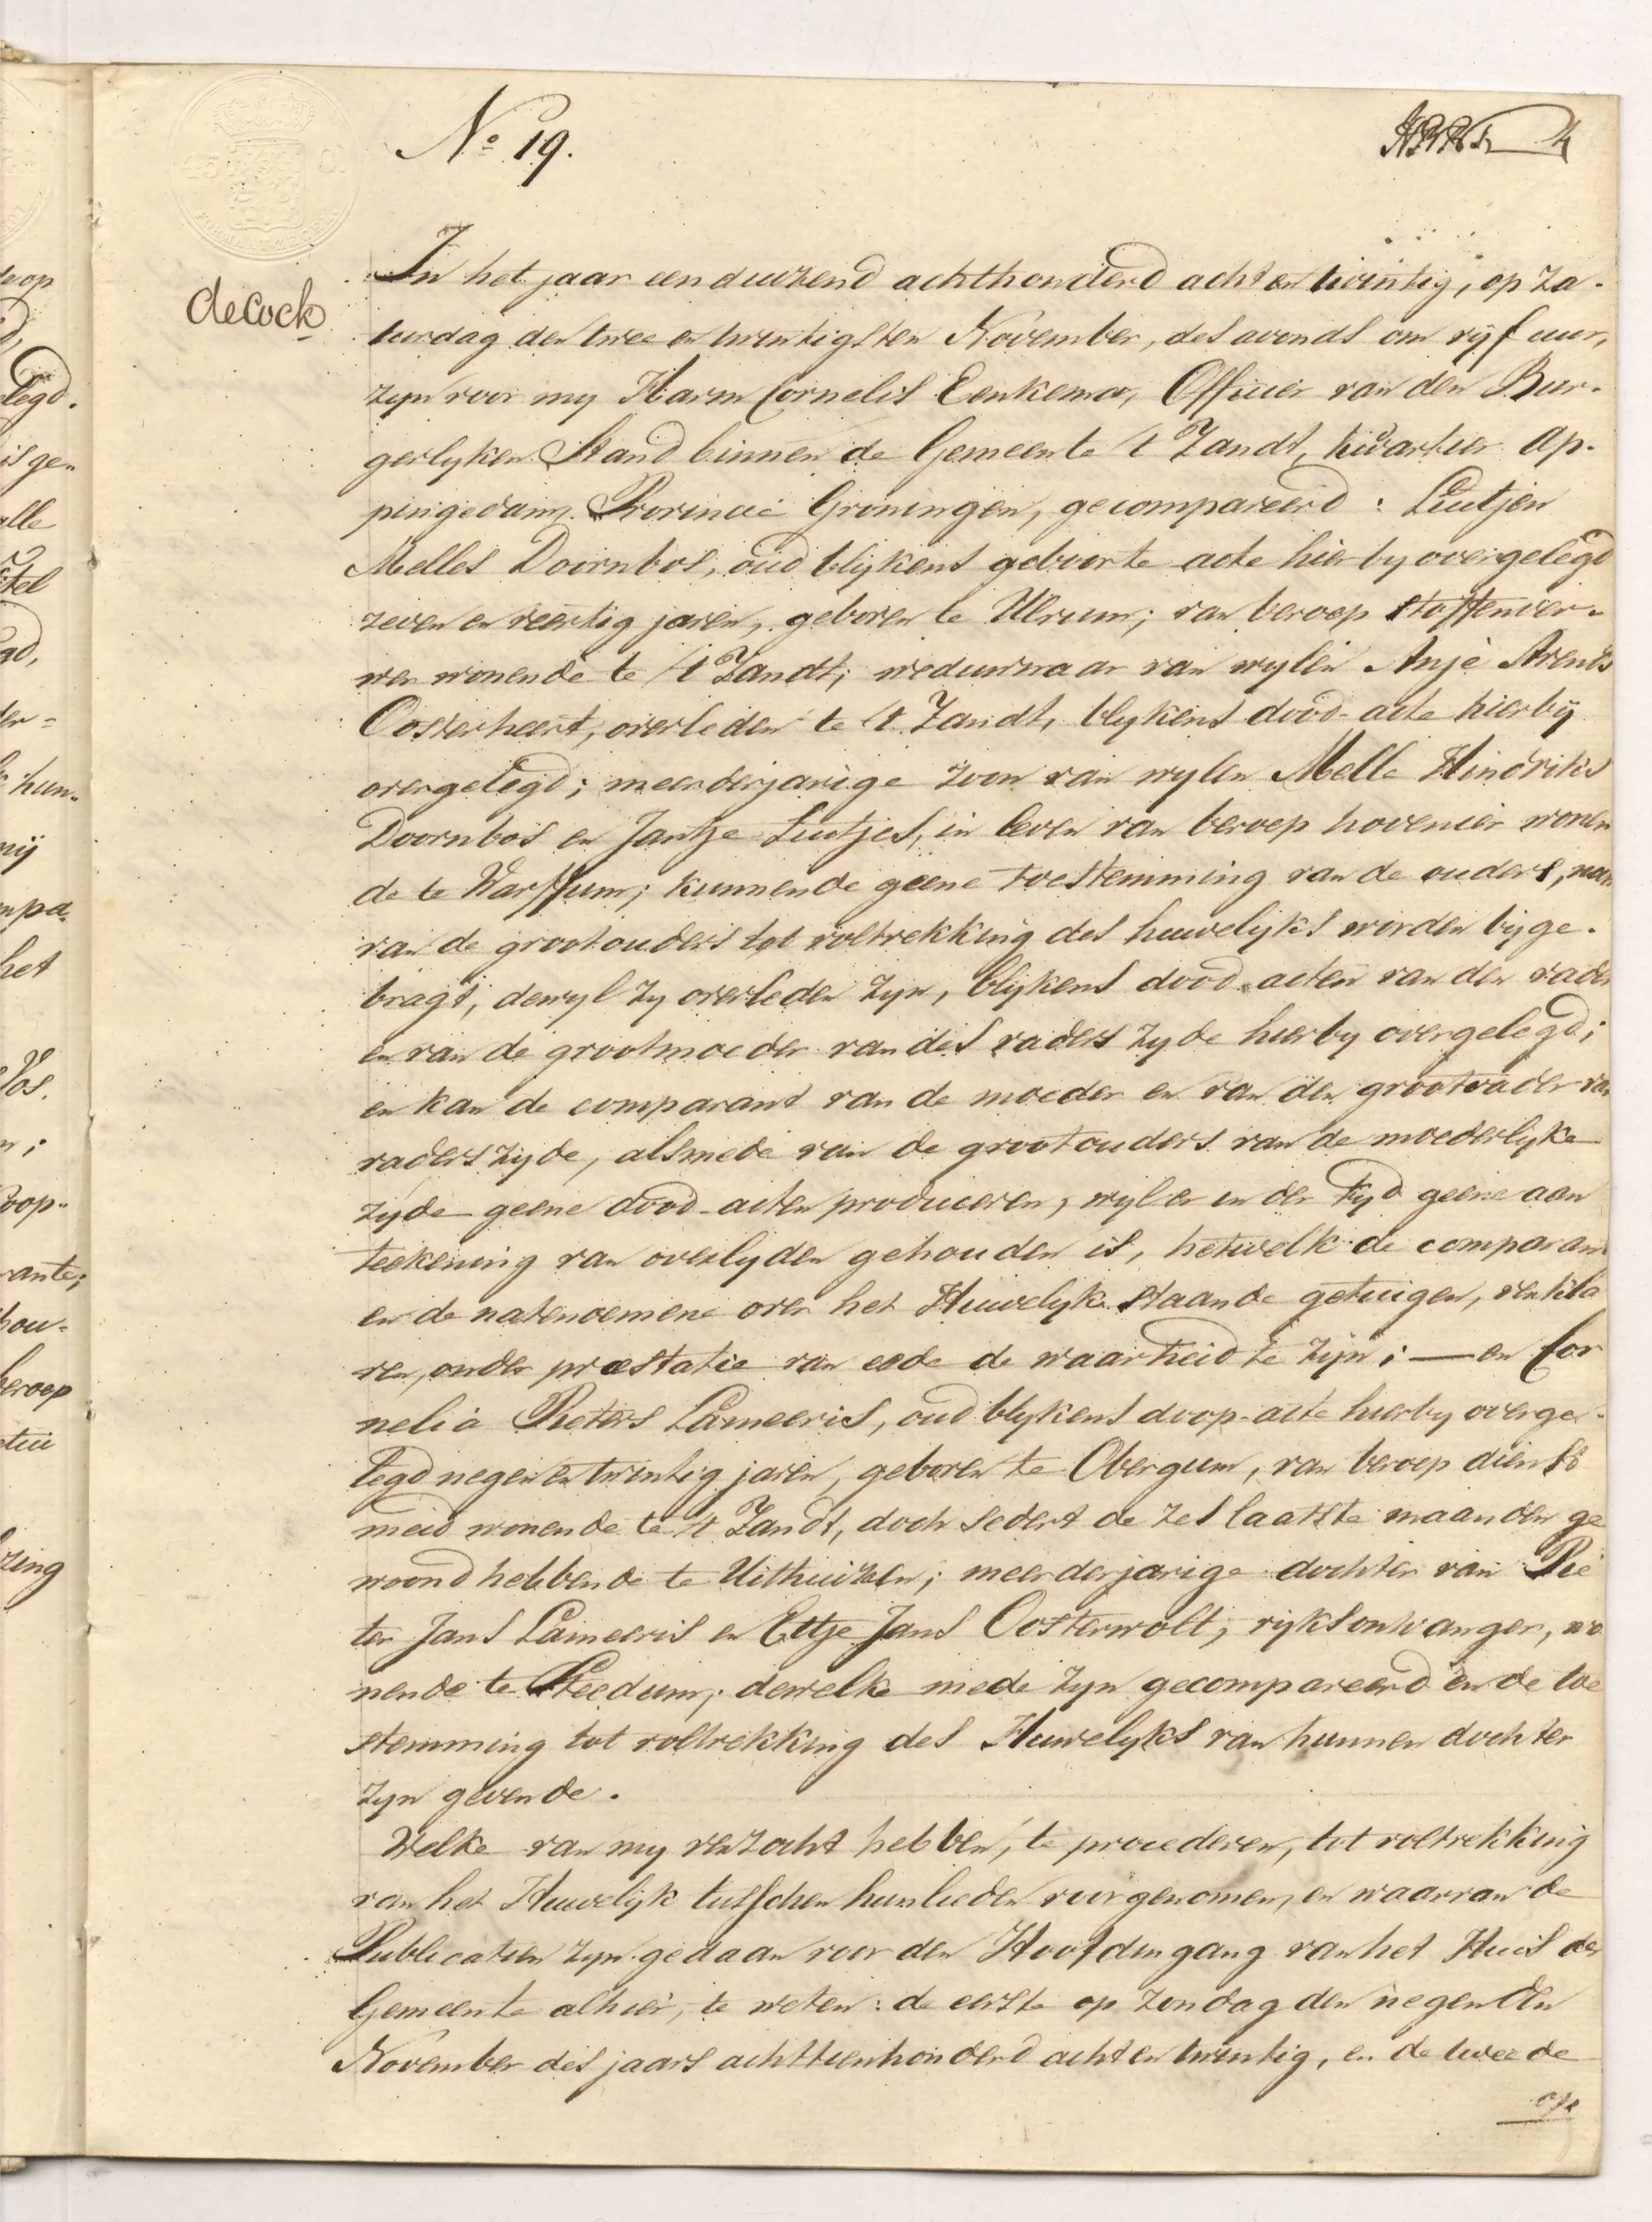 No 19.
decock
In het jaar een duizend achthonderd acht en twintig, op Za-
turdag den twee en twintigsten November, des avonds om vyf uur,
zyn voor my Harm Cornelis Eenkema, Officier van den Bur-
gerlyken Stand binnen de Gemeente 't Zandt, kwartier Ap-
pingedam, Provincie Groningen, gecompareerd: Luitjen
Melles Doornbos, oud blijkens geboorte acte hierby overgelegd
zeven en veertig jaren, geboren te Ulrum; van beroep stoffenver-
wer wonende te 't Zandt; weduwnaar van wylen Anje Arends
Oosterheert, overleden te 't Zandt, blykens dood-acte hierbij
overgelegd; meerderjarige zoon van wylen Melle Hindriks
Doornbos en Jantje Luitjes, in leven van beroep hovenier wonen
de te Warffum; kunnende geene toestemming van de ouders, noch
van de grootouders tot voltrekking des huwelijks worden bijge-
bragt, dewyl zy overleden zyn, blykens dood-acten van den vader
en van de grootmoeder van des vaders zyde hierby overgelegd;
en kan de comparant van de moeder en van den grootvader van
vaders zyde, alsmede van de grootouders van de moederlyke
zyde geene dood-acten produceren, wyl er in der tyd geene aan
teekening van overlyden gehouden is, hetwelk de comparant
en de natenoemene over het Huwelyk staande getuigen, verkla
ren, onder præstatie van eede de waarheid te zyn; — en Cor
nelia Pieters Lameeris, oud blykens doop-acte hierby overge-
legd negen en twintig jaren, geboren te Obergum, van beroep dienst
meid wonende te 't Zandt, doch sedert de zes laatste maanden ge
woond hebbende te Uithuizen; meerderjarige dochter van Pie
ter Jans Lameeris en Eltje Jans Oosterwolt, ryksontvanger, wo
nende te Leedum; dewelke mede zyn gecompareerd en de toe
stemming tot voltrekking des Huwelyks van hunnen dochter
zyn gevende.
Welke van my verzocht hebben, te procederen, tot voltrekking
van het Huwelijk tusschen hunlieden voorgenomen, en waarvan de
Publicatien zyn gedaan voor den Hoofdingang van het Huis der
Gemeente alhier, te weten: de eerste op Zondag den negenden
November des jaars achttienhonderd acht en twintig, en de tweede
op